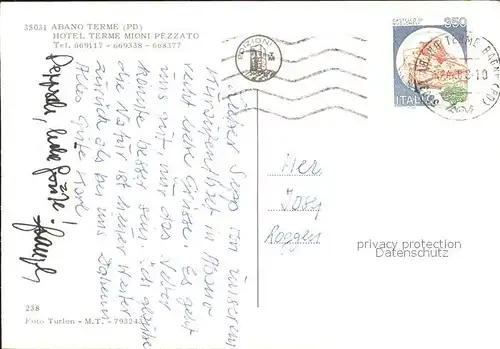 35031 ABANO TERME (PD)
HOTEL TERME MIONI PEZZATO
Tel. 669117 - 669338 - 668377
EDIZIONI
350
ITALIA
TERME BAGNI (PD)
Lieber Sepp von unserem
Kuraufenthalt in Abano
recht liebe Grüsse. Es geht
uns gut, nur das Wetter
könnte besser sein. Ich glaube
die Natur ist hier weiter
zurück als bei uns daheim
Alles gute
liebe Grüße!
Her
Josef
Roggen
privacy protection
Datenschutz
238
Foto Turlon - M.T. - 793243